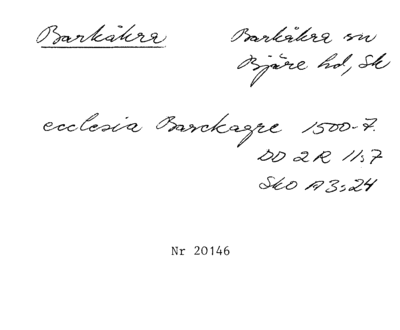 Barkåkra Barkåkra sn
Bjäre hd, Sk
ecclesia Barckagre 1500-t.
DD 2 R 11:7
SkO A3:24
Nr 20146